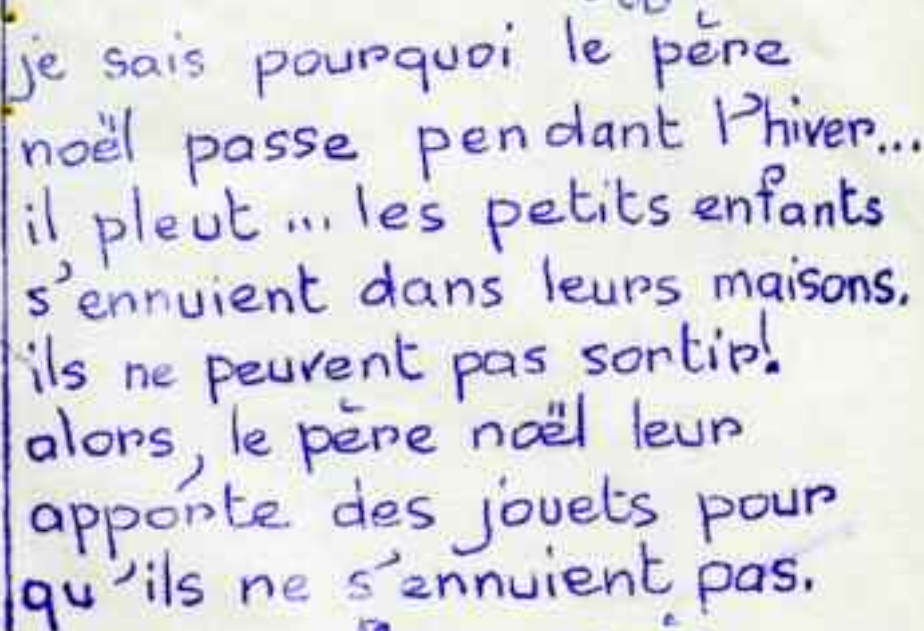 je sais pourquoi le père
noël passe pendant l'hiver...
il pleut... les petits enfants
s'ennuient dans leurs maisons.
ils ne peuvent pas sortir!
alors, le père noël leur
apporte des jouets pour
qu'ils ne s'ennuient pas.